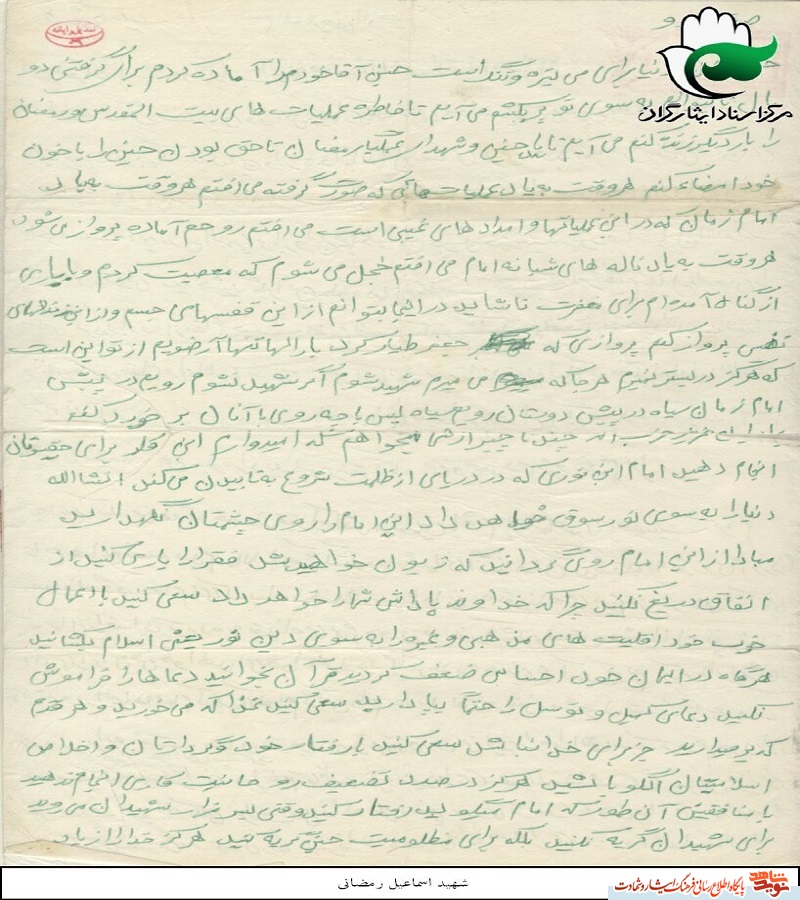 مرکز اسناد ایثارگران
دنیا برای من تیره و تنگ است حسین آقا خودم را آماده کردم برای گرفتن دو
به سوی تو پر بکشم می آیم تا خاطره عملیات های بیت المقدس و رمضان
را بار دیگر زنده کنم می آیم تا حسین و شهدای رمضان تا حق بودن حسین را با خون
خود امضاء کنم هر وقت به یاد عملیات هائی که صورت گرفته می افتم هر وقت به یاد
امام زمان که در این عملیاتها و امداد های غیبی است می افتم روحم آماده پرواز می شود
هر وقت به یاد ناله های شبانه امام می افتم خجل می شوم که معصیت کردم و با
از گناه آمده ام برای هفرت تا شاید در اینجا بتوانم از این قفسهای جسم و از این
نفس پرواز کنم پروازی که جعفر طیار کرد بارالها تنها آرزویم از تو این است
که هرگز در بستر نمیرم هر جا که می میرم شهید شوم اگر شهید نشوم رویم در پیش
امام زمان سیاه در پیش دوستان رویم سیاه پس با چه روی با آنان بر خورد کنم
چند تا چیز از شما میخواهم که امیدوارم این کار برای
انجام دهید امام این نوری که در دریای از ظلمت شروع به تابیدن می کند انشاالله
دنیا را به سوی نور سوق خواهد داد این امام را روی چشمتان نگهدارید
مبادا از این امام روی گردانید که زبون خواهید شد فقرا را یاری کنید از
انفاق دریغ نکنید چرا که خداوند پاداش شما را خواهد داد سعی کنید با اعمال
خوب خود اقلیت های مذهبی و غیره را به سوی دین نور یعنی اسلام بکشانید
هرگاه در ایمان خود احساس ضعف کردید قرآن بخوانید دعاها را فراموش
نکنید دعای کمیل و توسل را حتما بپا دارید سعی کنید غذا که می خورید و هر قدم
که بر میدارید جز برای خدا نباشد سعی کنید با رفتار خود و کردارتان و اخلاص
اسلامیتان الگو باشید هرگز در صدد تضعیف روحانیت کاری انجام ندهید
با منافقین آن طور که امام میگوید رفتار کنید وقتی سر مزار شهیدان می روید
برای شهیدان گریه نکنید بلکه برای مظلومیت حسین گریه کنید هرگز خدا را از یاد
شهید اسماعیل رمضانی
نوید شاهد
پایگاه اطلاع رسانی فرهنگ ایثار و شهادت